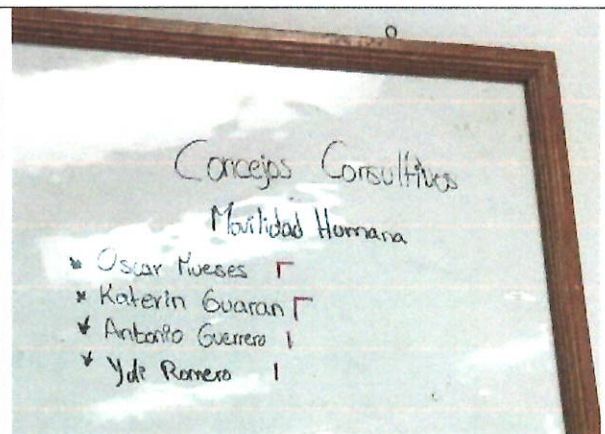 Concejos Consultivos
Movilidad Humana
* Oscar Mueses
* Katerin Guaran
* Antonio Guerrero
* Yuli Romero